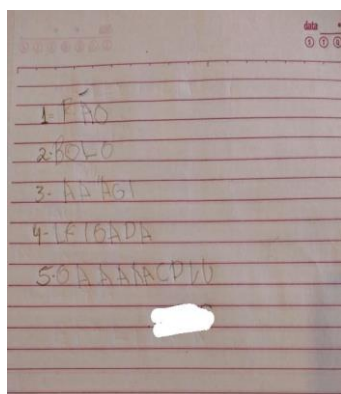 data
S T Q
1- PÃO
2- BOLO
3- AAAGI
4- LEIGADA
5- OAAAAACDLU